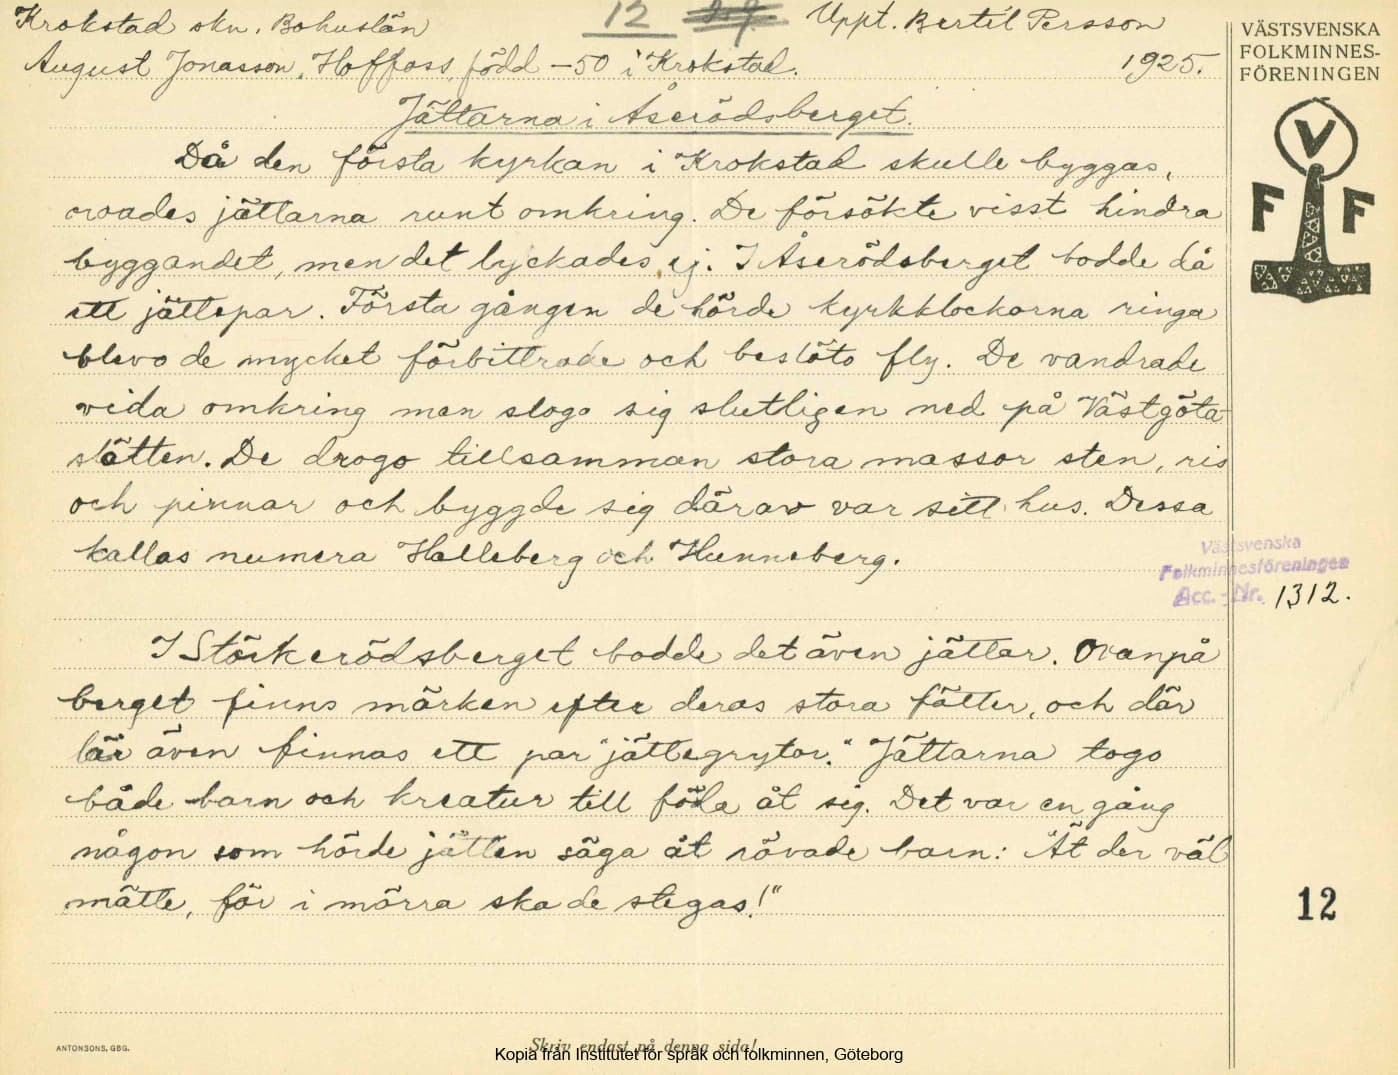 Krokstad skn. Bohuslän 12 Uppt. Bertil Persson
August Jonasson, Hoffoss, född -50 i Krokstad. 1925.
VÄSTSVENSKA
FOLKMINNES-
FÖRENINGEN
V
F F
Jättarna i Åserödsberget.
Då den första kyrkan i Krokstad skulle byggas,
oroades jättarna runt omkring. De försökte visst hindra
byggandet, men det lyckades ej. I Åserödsberget bodde då
ett jättepar. Första gången de hörde kyrkklockorna ringa
blevo de mycket förbittrade och beslöto fly. De vandrade
vida omkring men slogo sig slutligen ned på Västgöta-
slätten. De drogo tillsamman stora massor sten, ris
och pinnar och byggde sig därav var sitt hus. Dessa
kallas numera Halleberg och Hunneberg.
Västsvenska
Folkminnesföreningen
Acc.-Nr. 1312.
I Störkerödsberget bodde det även jättar. Ovanpå
berget finns märken efter deras stora fötter, och där
lär även finnas ett par "jättegrytor." Jättarna togo
både barn och kreatur till föda åt sig. Det var en gång
någon som hörde jätten säga åt rövade barn: "Ät der väl
mätte, för i mörra ska de stegas!"
12
ANTONSONS, GBG.
Skriv endast på denna sida!
Kopia från Institutet för språk och folkminnen, Göteborg